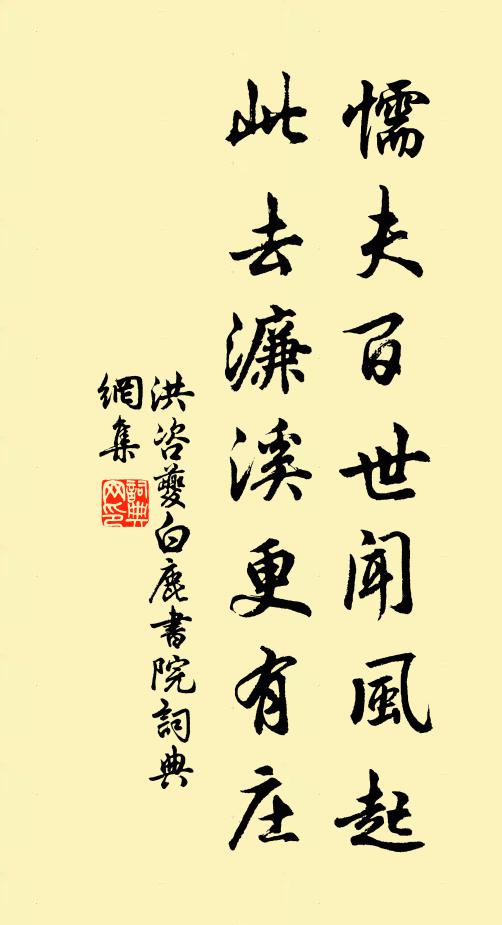 懦夫百世聞風起
此去濂溪更有庄
洪咨夔白鹿書院詞典
網集
詞典網印